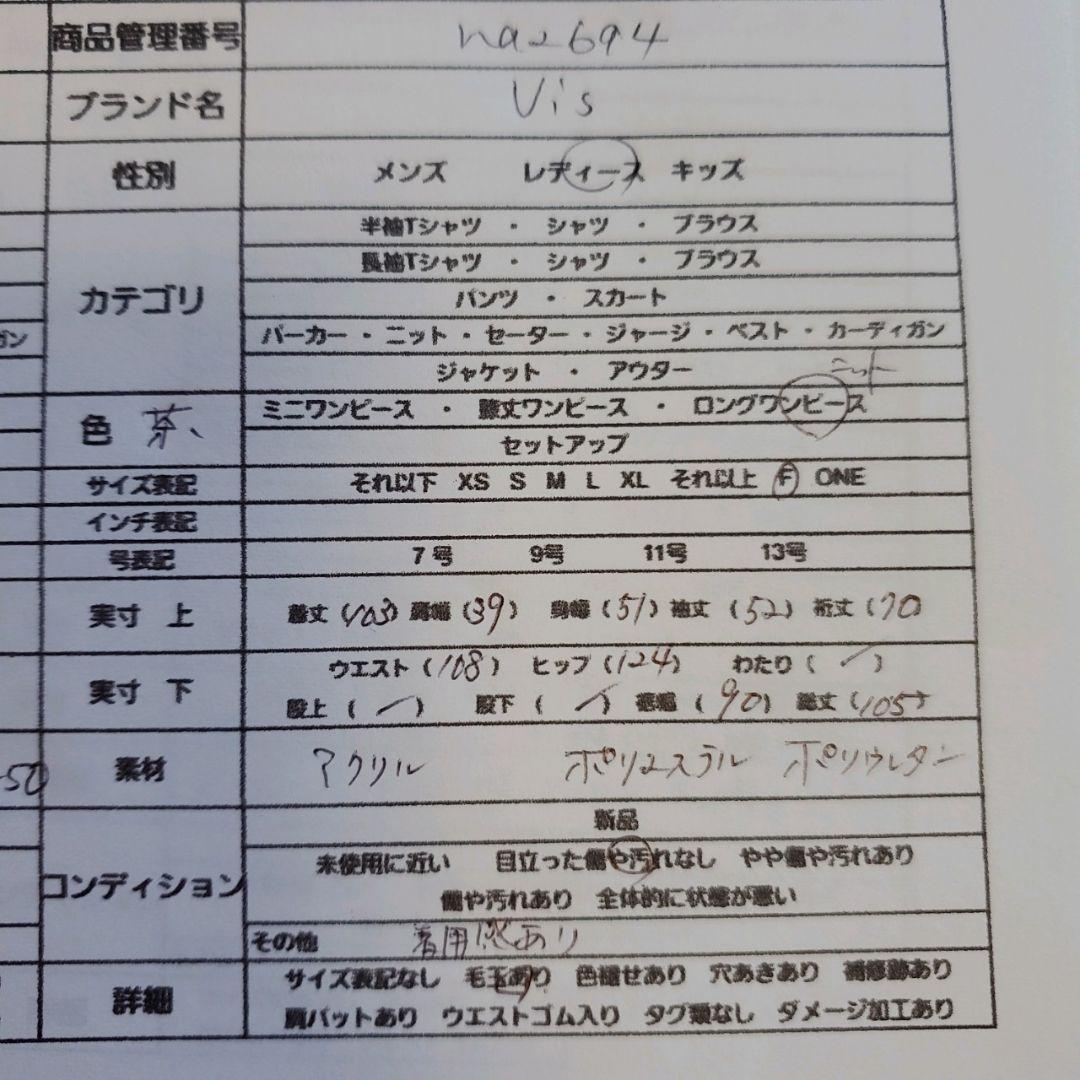 商品管理番号 na2694
ブランド名 Vis
性別 メンズ レディース キッズ
半袖Tシャツ ・ シャツ ・ ブラウス
長袖Tシャツ ・ シャツ ・ ブラウス
カテゴリ パンツ ・ スカート
ガン パーカー・ニット・セーター・ジャージ・ベスト・カーディガン
ジャケット ・ アウター ニット
ミニワンピース ・ 膝丈ワンピース ・ ロングワンピース
色 茶、
セットアップ
サイズ表記 それ以下 XS S M L XL それ以上 F ONE
インチ表記
号表記 7号 9号 11号 13号
実寸 上 着丈(103) 肩幅(39) 身幅(51) 袖丈(52) 裄丈(70)
実寸 下 ウエスト(108) ヒップ(124) わたり(/)
股上(/) 股下(/) 裾幅(90) 総丈(105)
50 素材 アクリル ポリエステル ポリウレタン
新品
未使用に近い 目立った傷や汚れなし やや傷や汚れあり
コンディション 傷や汚れあり 全体的に状態が悪い
その他 着用感あり
サイズ表記なし 毛玉あり 色褪せあり 穴あきあり 補修跡あり
詳細 肩パットあり ウエストゴム入り タグ類なし ダメージ加工あり